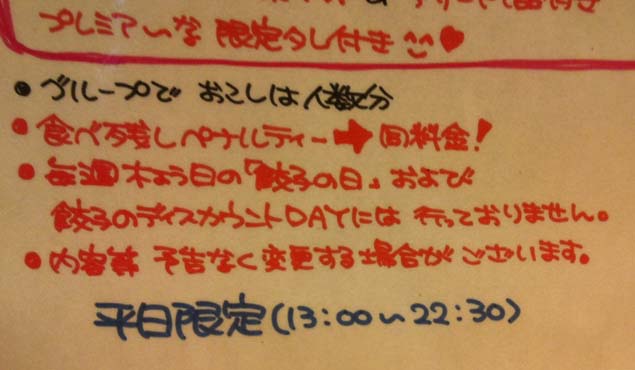 プレミアムな 限定タレ付き
• グループで おこしは 人数分
• 食べ残しペナルティー➡同料金!
• 毎週 木よう日の「餃子の日」および
餃子のディスカウントDAYには 行っておりません。
• 内容等 予告なく変更する場合がございます。
平日限定(13:00~22:30)